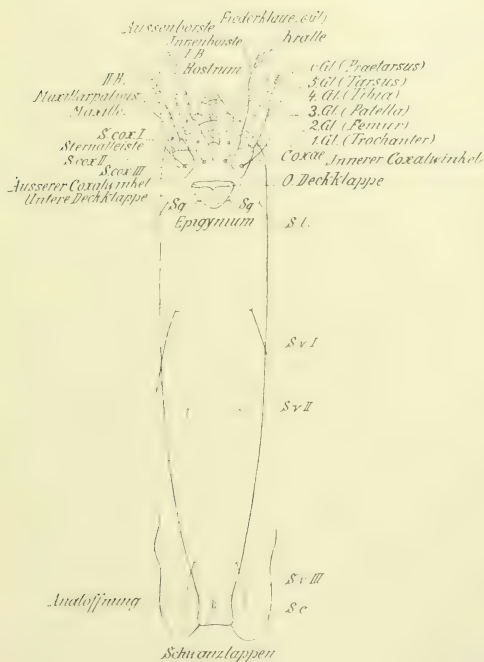 Aussenborste
Innenborste
Rostrum
Maxillarpalpus
Maxille.
S. cox I
Sternalleiste
S. cox II
S. cox III
Äusserer Coxalwinkel
Untere Deckklappe
Fiederklaue,
kralle
Gl. (Praetarsus)
5. Gl. (Tarsus)
4. Gl. (Tibia)
3. Gl. (Patella)
2. Gl. (Femur)
1. Gl. (Trochanter)
Coxae Innerer Coxalwinkel
O. Deckklappe
Sg. Sg.
Epigynium
S. l.
S v I
S v II
S v III
Analöffnung
S c
Schwanzlappen